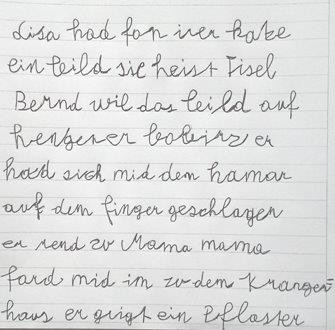 Lisa had fon irer kate
ein beild sie heist Fisel
Bernd wil das beild auf
hengen er er
had sich mid dem hamar
auf dem finger geschlagen
er rend zu Mama mama
fard mid im zu dem Krangen=
haus er grigt ein Pflaster